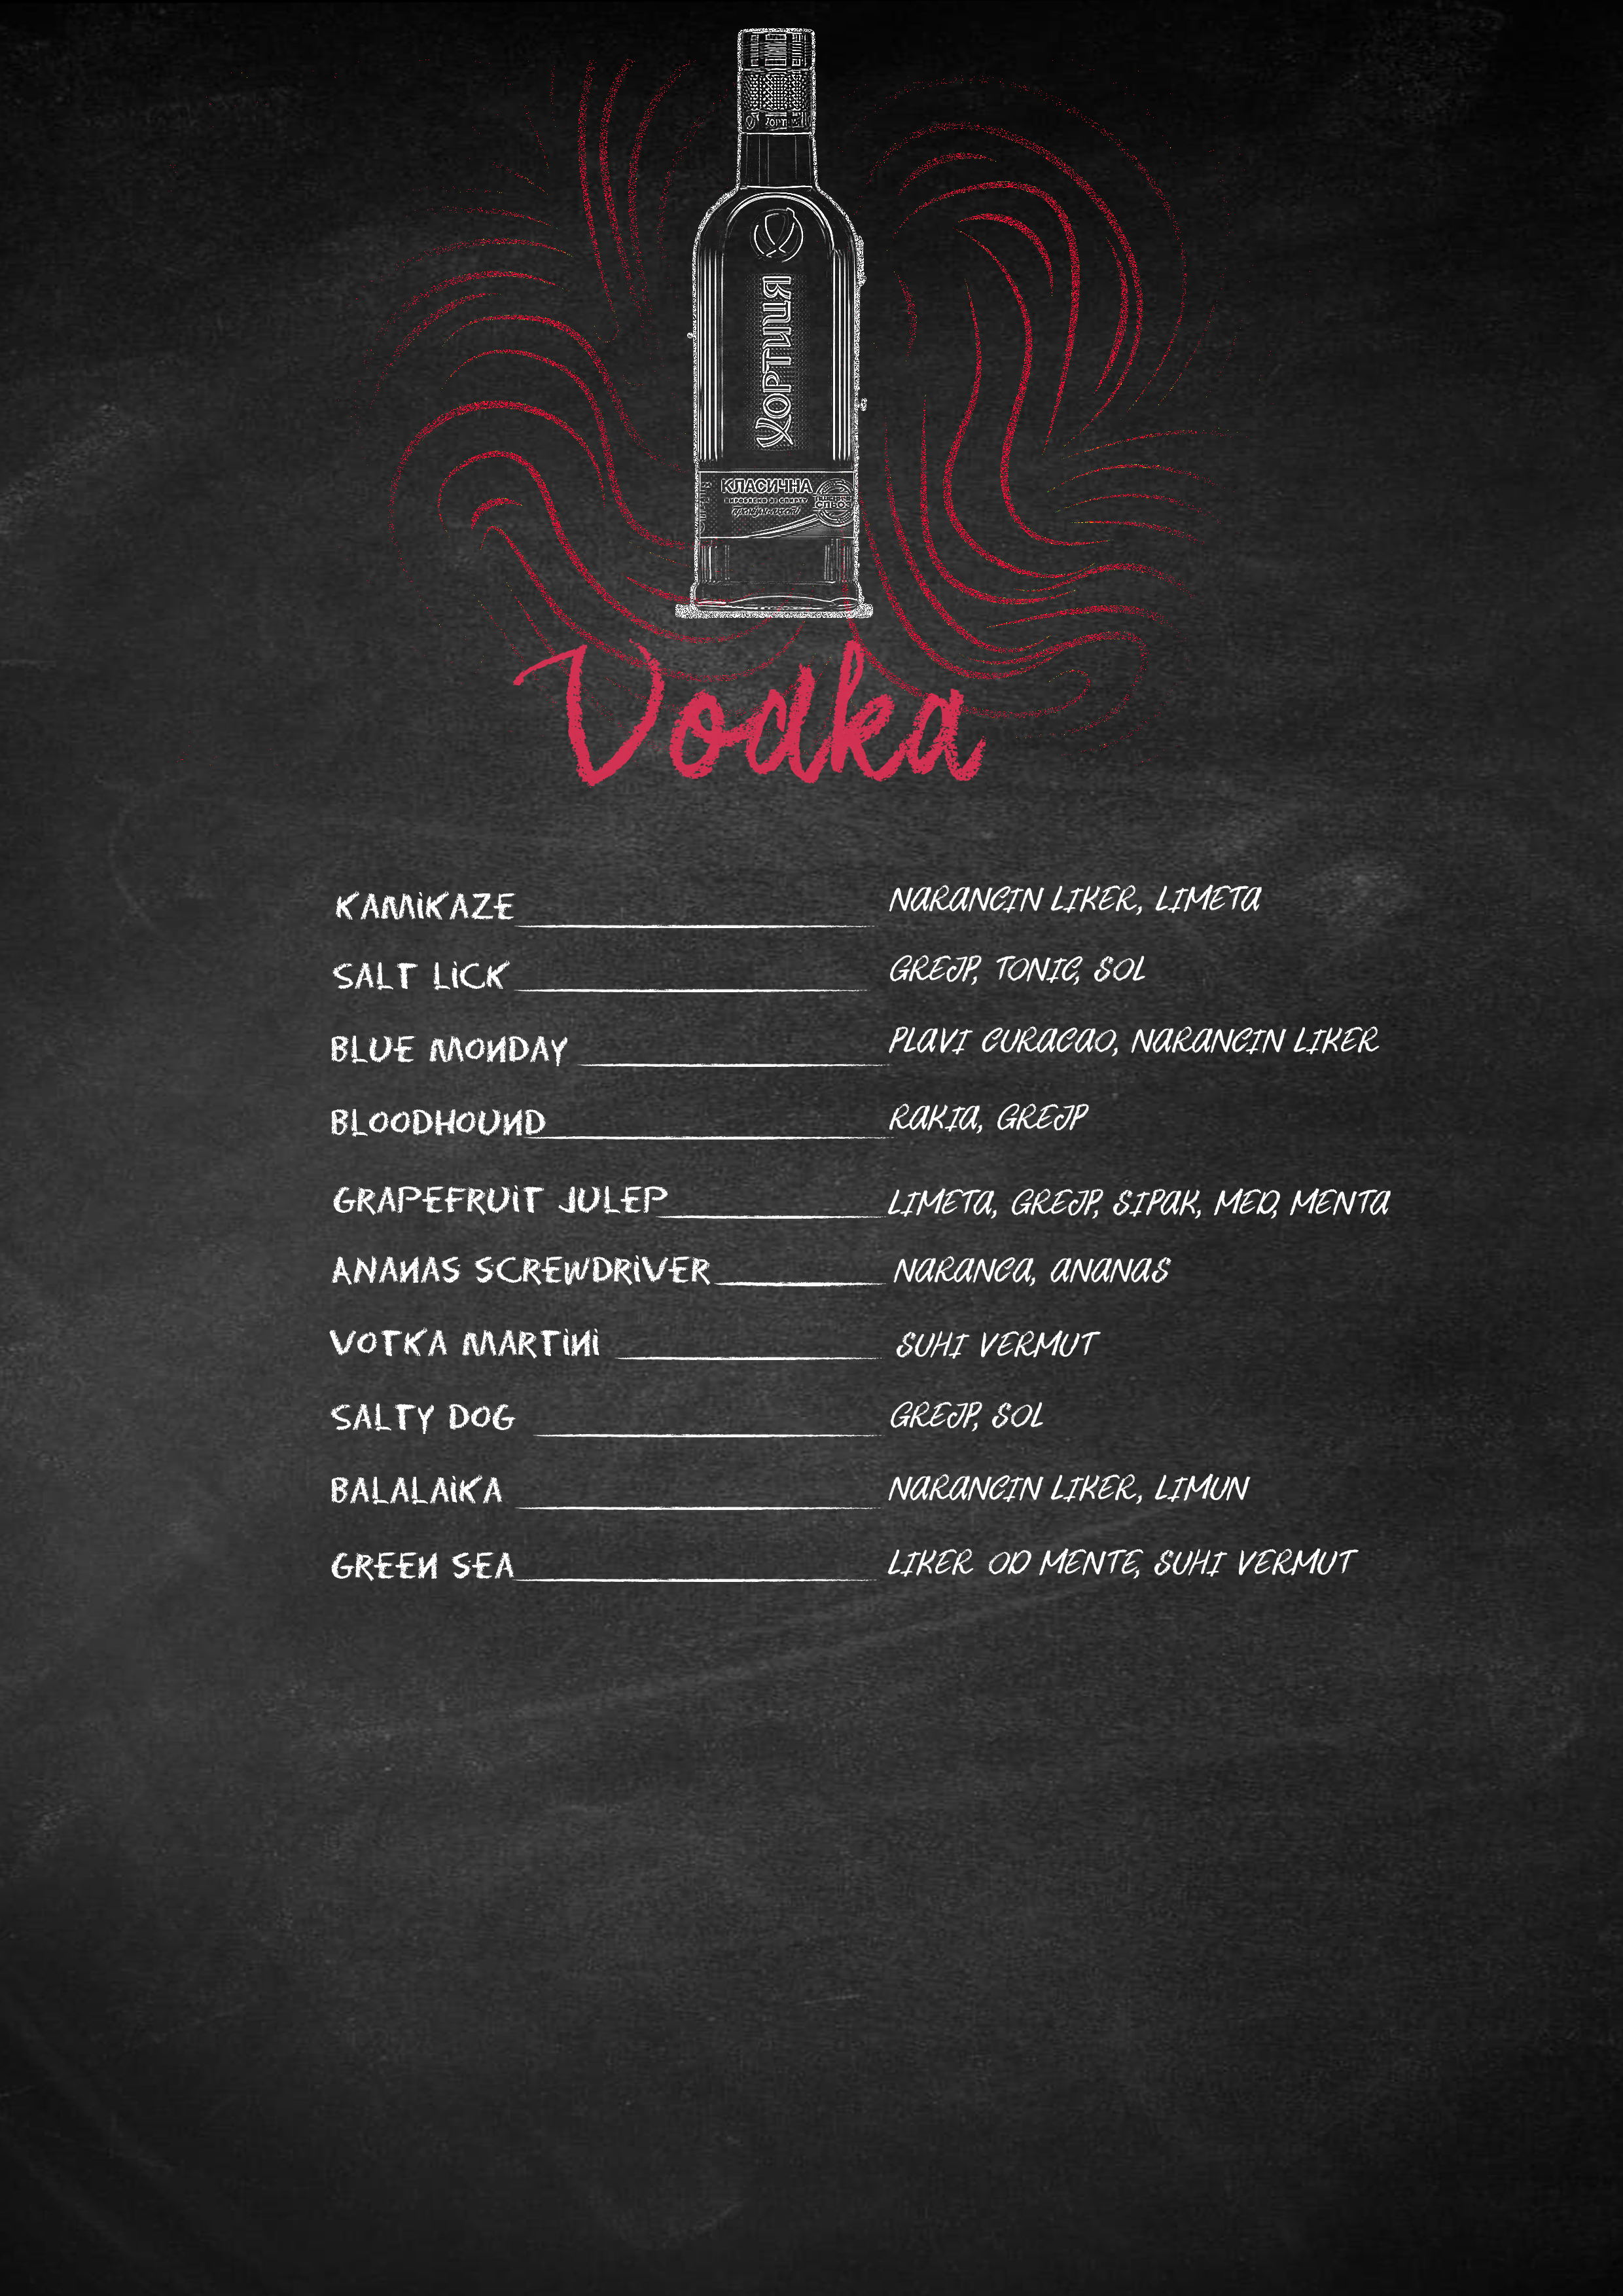 ХОРТИЦЯ
КЛАСИЧНА
Vodka
KAMiKAZE NARANCIN LIKER, LIMETA
SALT LiCK GREJP, TONIC, SOL
BLUE MONDAY PLAVI CURACAO, NARANCIN LIKER
BLOODHOUND RAKIA, GREJP
GRAPEFRUiT JULEP LIMETA, GREJP, SIPAK, MED, MENTA
ANANAS SCREWDRiVER NARANCA, ANANAS
VOTKA MARTiNi SUHI VERMUT
SALTY DOG GREJP, SOL
BALALAiKA NARANCIN LIKER, LIMUN
GREEN SEA LIKER OD MENTE, SUHI VERMUT